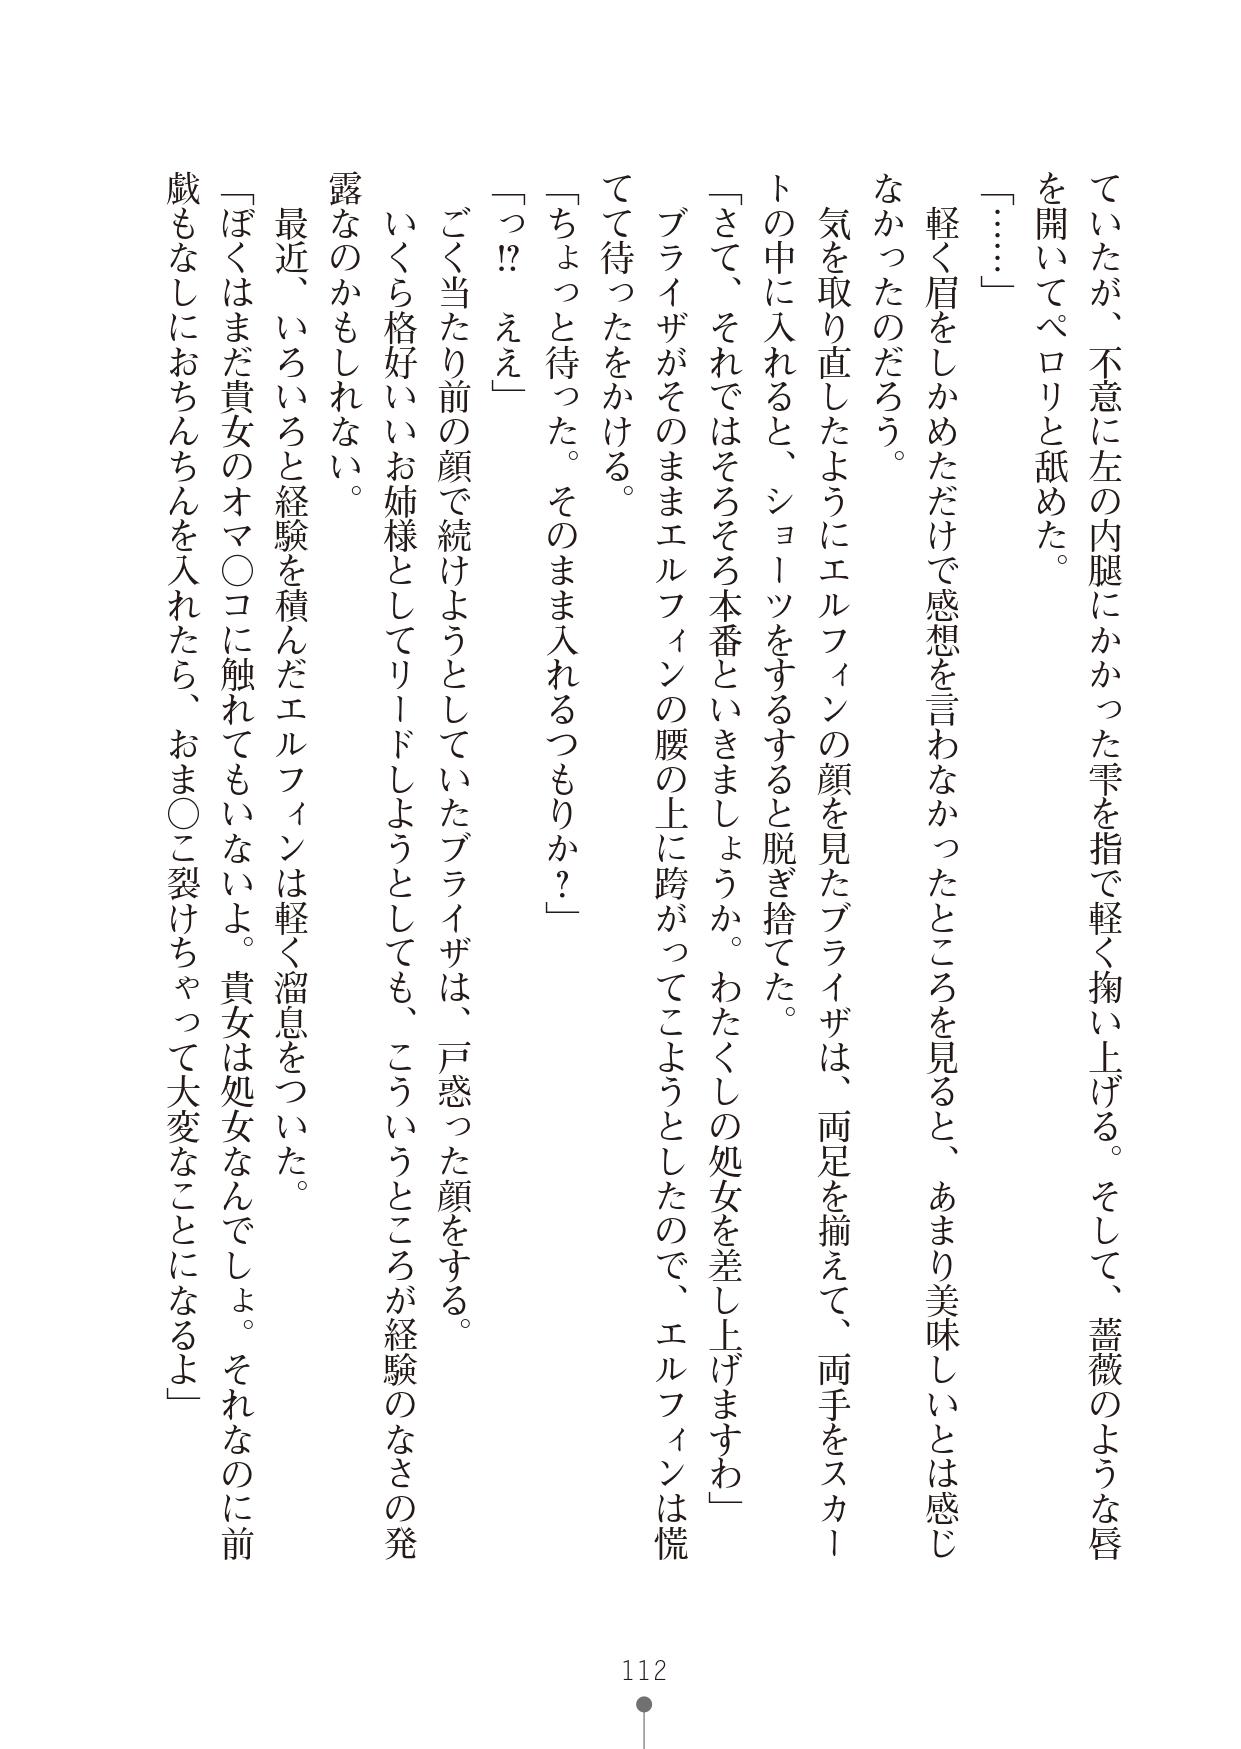 ていたが、不意に左の内腿にかかった雫を指で軽く掬い上げる。そして、薔薇のような唇
を開いてペロリと舐めた。
「……」
　軽く眉をしかめただけで感想を言わなかったところを見ると、あまり美味しいとは感じ
なかったのだろう。
　気を取り直したようにエルフィンの顔を見たブライザは、両足を揃えて、両手をスカー
トの中に入れると、ショーツをするすると脱ぎ捨てた。
「さて、それではそろそろ本番といきましょうか。わたくしの処女を差し上げますわ」
　ブライザがそのままエルフィンの腰の上に跨がってこようとしたので、エルフィンは慌
てて待ったをかける。
「ちょっと待った。そのまま入れるつもりか？」
「っ!?　ええ」
　ごく当たり前の顔で続けようとしていたブライザは、戸惑った顔をする。
　いくら格好いいお姉様としてリードしようとしても、こういうところが経験のなさの発
露なのかもしれない。
　最近、いろいろと経験を積んだエルフィンは軽く溜息をついた。
「ぼくはまだ貴女のオマ〇コに触れてもいないよ。貴女は処女なんでしょ。それなのに前
戯もなしにおちんちんを入れたら、おま〇こ裂けちゃって大変なことになるよ」
112